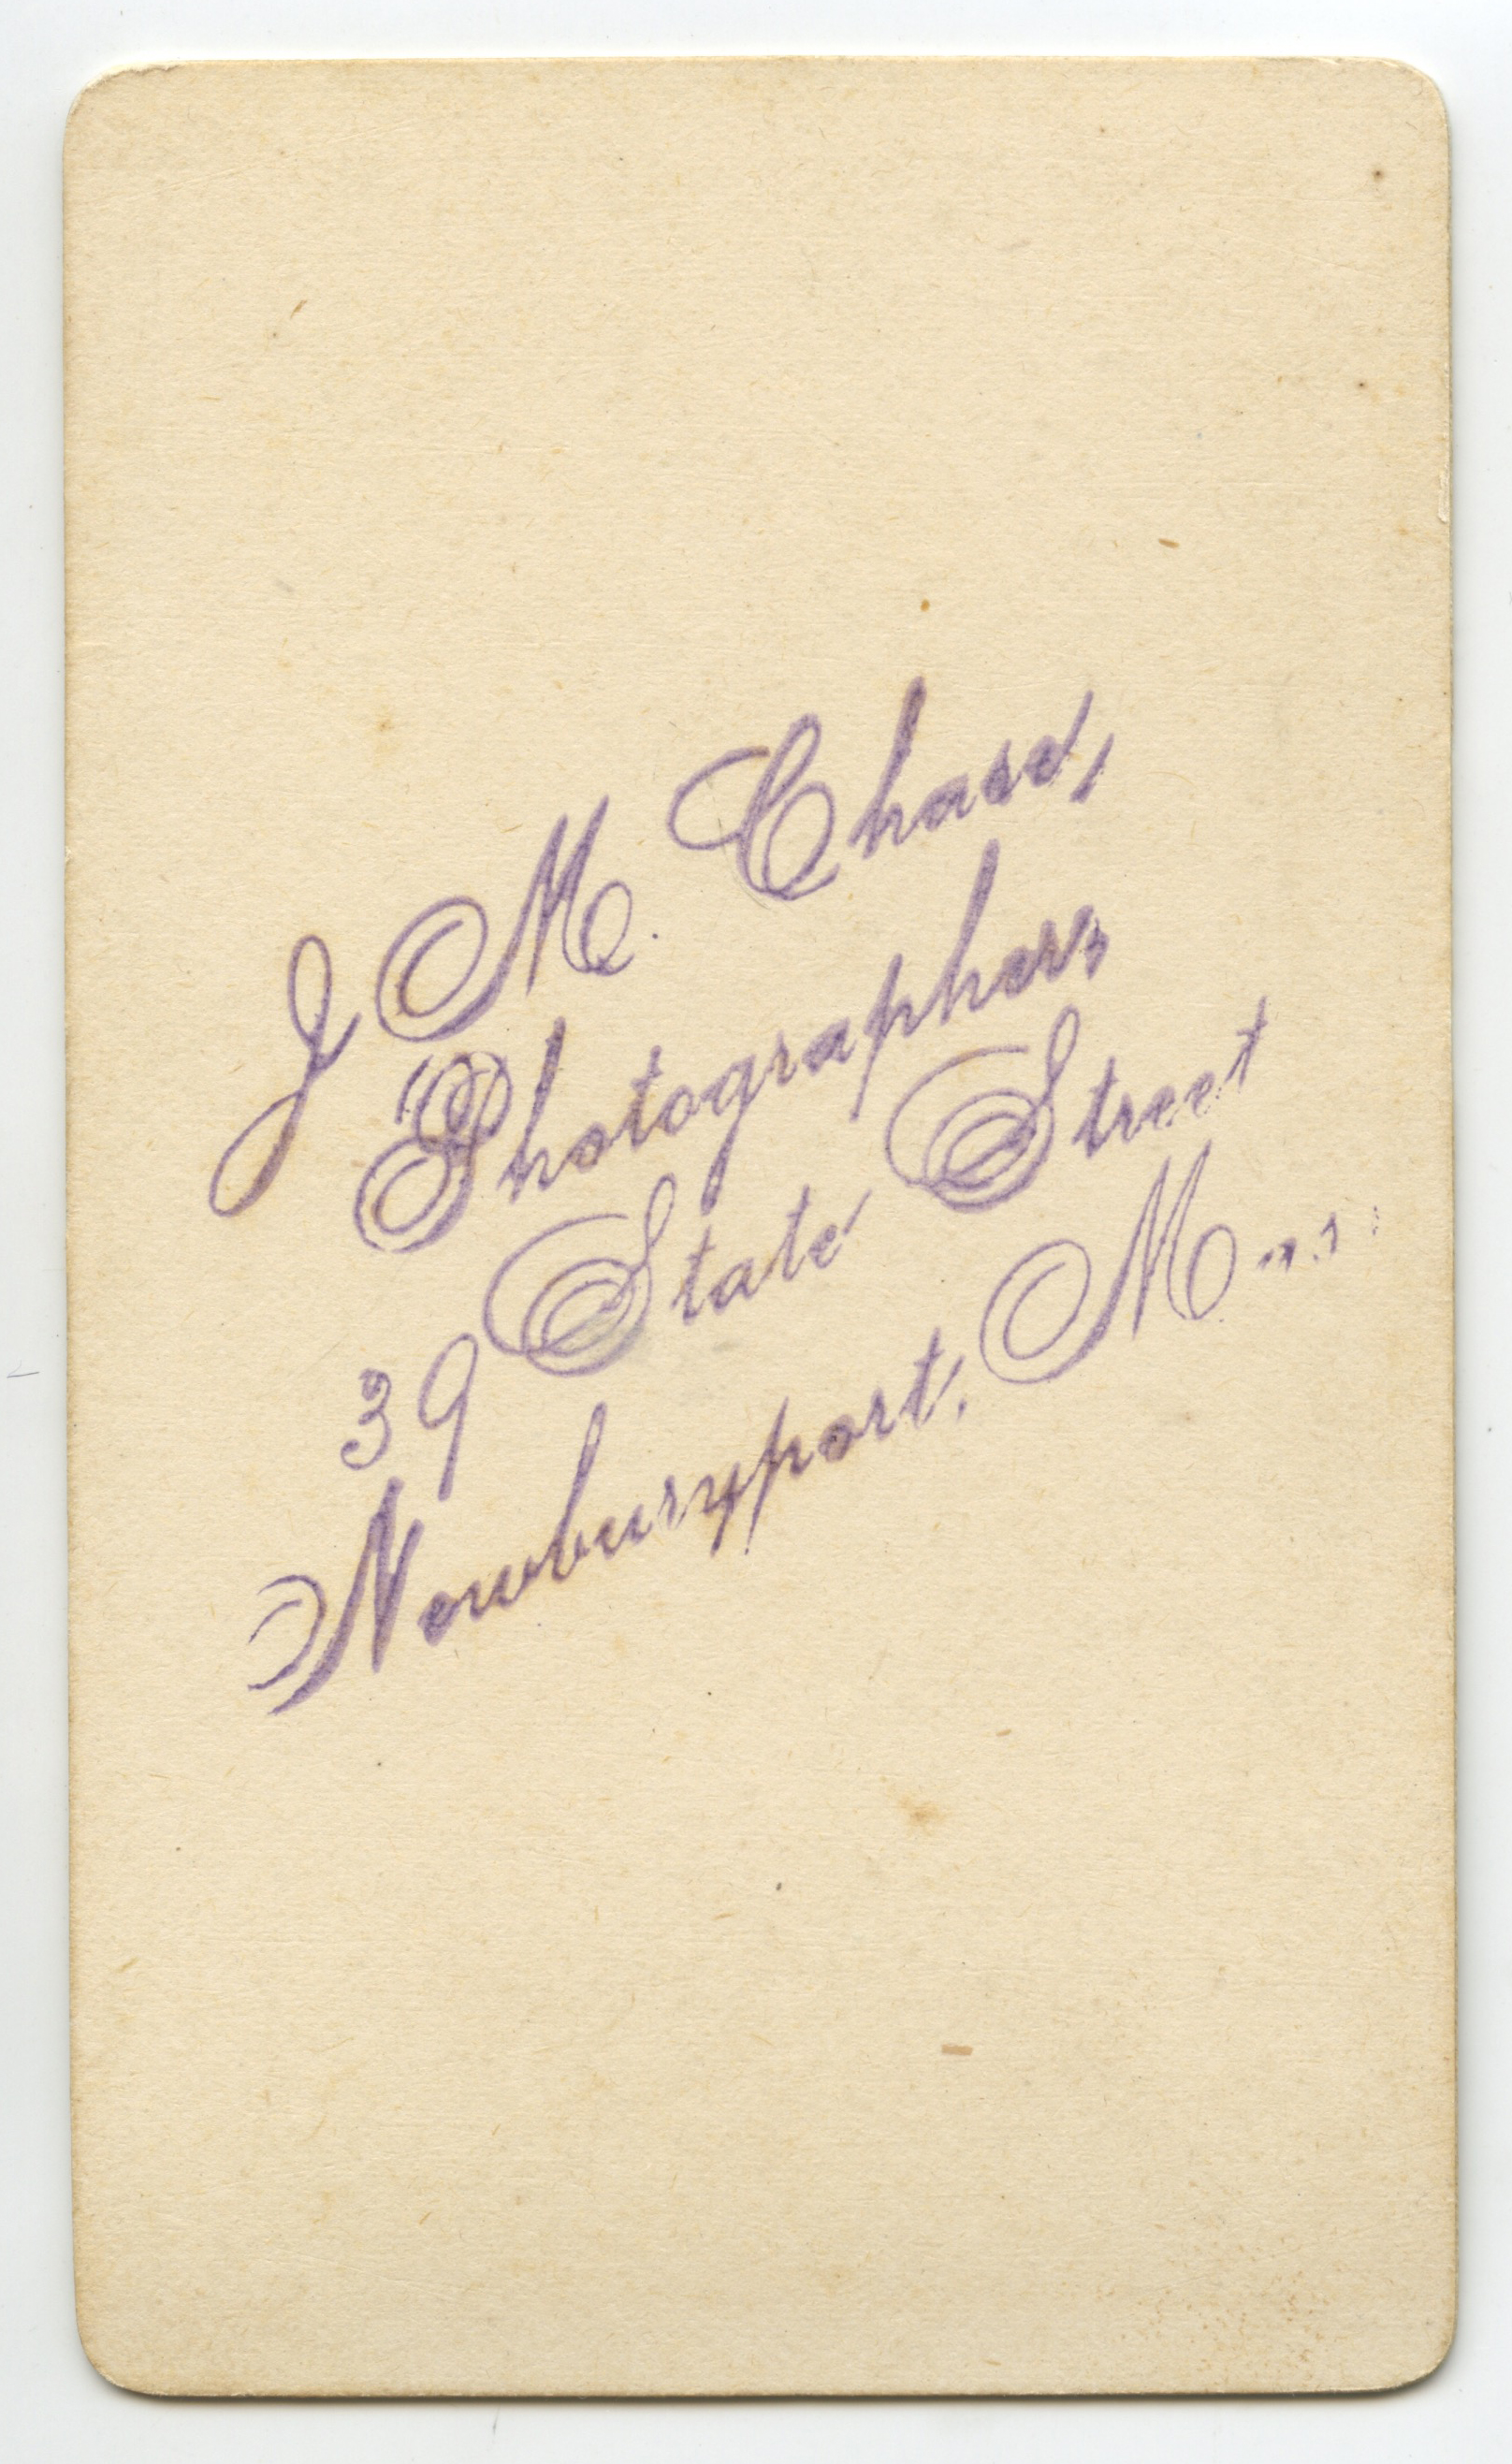 J M. Chase,
Photographer,
39 State Street
Newburyport, Mass.